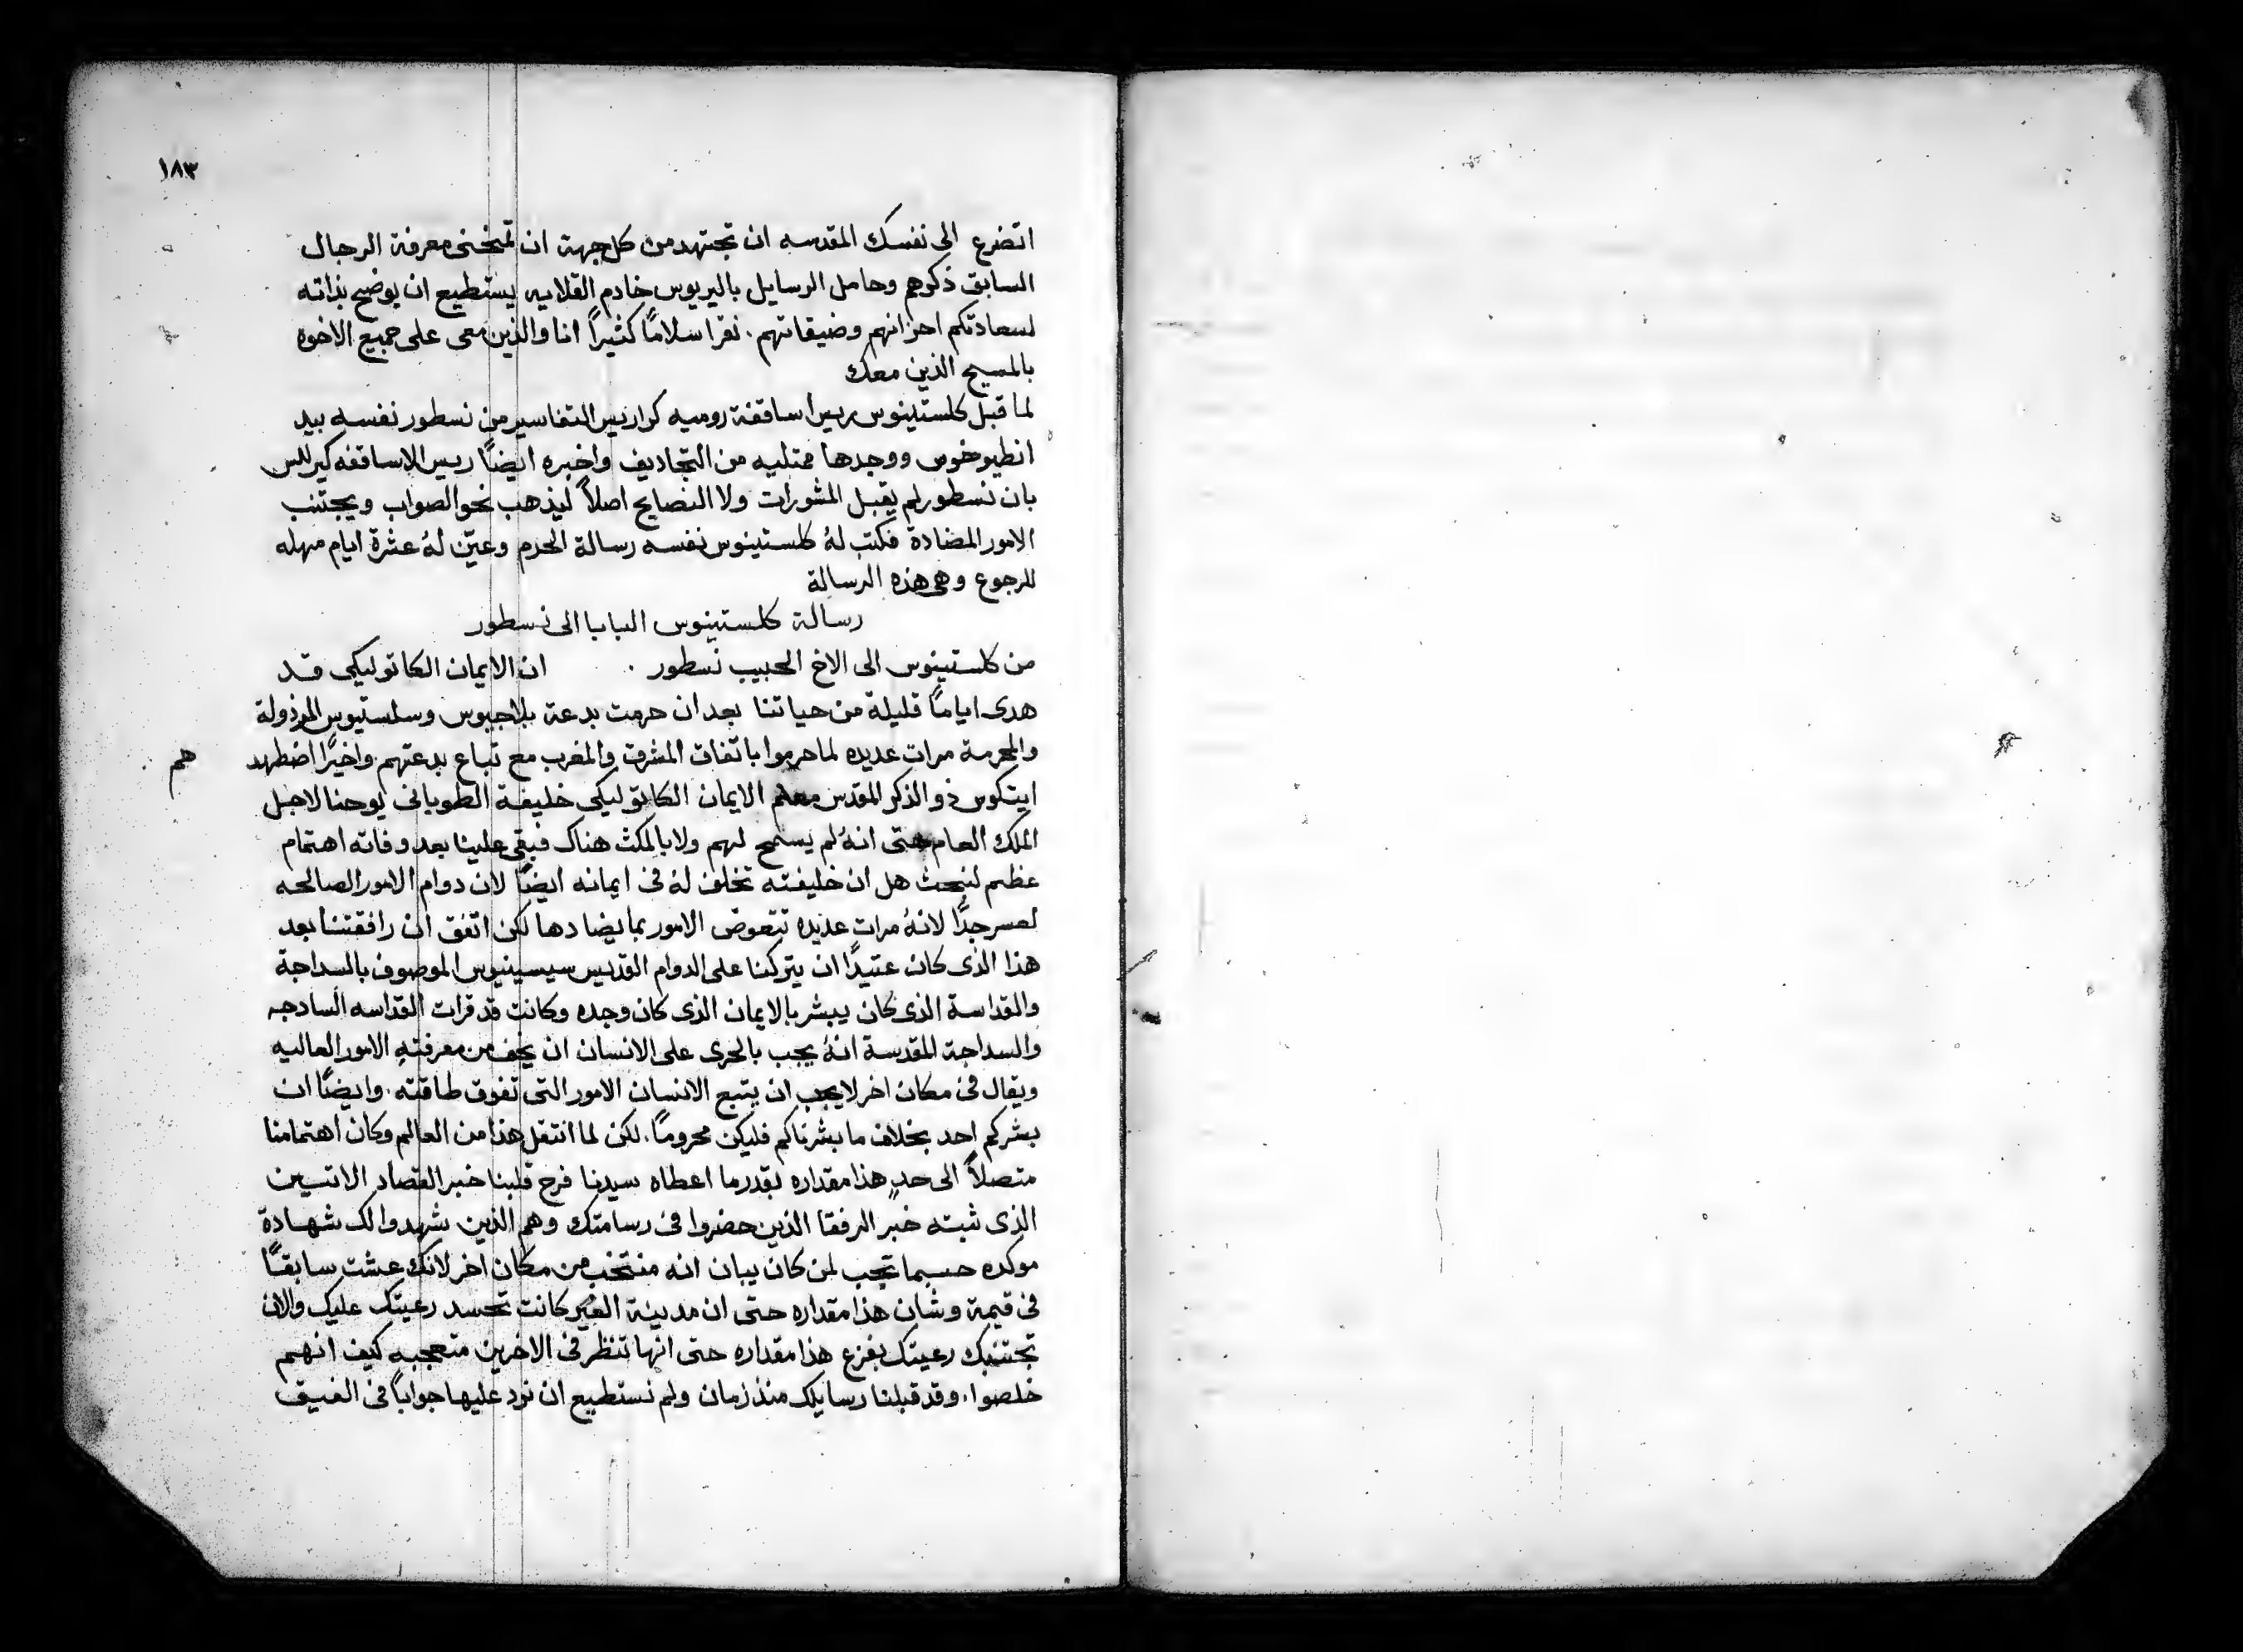 ١٨٣
اتضرع الى نفسك المقدسه ان تجتهد من كل جهة ان تمنحنى معرفة الرجال
السابق ذكرهم وحامل الرسايل باليريوس خادم القلايه يستطيع ان يوضح بذاته
لسعادتكم احزانهم وضيقاتهم. نقرا سلامًا كثيرًا انا والذين معى على جميع الاخوه
بالمسيح الذين معك
لما قبل كلستينوس ريس اساقفة روميه كراريس التفاسير من نسطور نفسه بيد
انطيوخوس ووجدها ممتليه من التجاديف واخبره ايضًا ريس الاساقفه كيرللس
بان نسطور لم يقبل المشورات ولا النصايح اصلاً ليذهب نحو الصواب ويجتنب
الامور المضادة فكتب لهُ كلستينوس نفسه رسالة الحرم وعيّن لهُ عشرة ايام مهله
للرجوع وهى هذه الرسالة
رسالة كلستينوس البابا الى نسطور
من كلستينوس الى الاخ الحبيب نسطور . ان الايمان الكاتوليكى قد
هدى ايامًا قليلة من حياتنا بعد ان حرمت بدعة بلاجيوس وسلستيوس المرذولة
والمحرمة مرات عديده لما حرموا باتفاق المشرق والمغرب مع تباع بدعتهم واخيرًا اضطهد
هم
ايتكوس ذو الذكر المقدس معلم الايمان الكاتوليكى خليفة الطوبانى يوحنا لاجل
الملك العام حتى انهُ لم يسمح لهم ولا بالمكث هناك فبقى علينا بعد وفاته اهتمام
عظيم لنبحث هل ان خليفته تخلف لهُ فى ايمانه ايضًا لان دوام الامور الصالحه
لعسر جدًّا لانهُ مرات عديده تتعوض الامور بما يضادها لكن اتفق ان رافقتنا بعد
هذا الذى كان عتيدًا ان يتركنا على الدوام القديس سيسينيوس الموصوف بالسداجة
والقداسة الذى كان يبشر بالايمان الذى كان وجده وكانت قد قرات القداسه السادجه
والسداجة المقدسة انهُ يجب بالحرى على الانسان ان يخف من معرفتهِ الامور العاليه
ويقال فى مكان اخر لا يجب ان يتبع الانسان الامور التى تفوق طاقته. وايضًا ان
بشركم احد بخلاف ما بشرناكم فليكن محرومًا. لكن لما انتقل هذا من العالم وكان اهتمامنا
متصلاً الى حدٍ هذا مقداره بقدر ما اعطاه سيدنا فرح قلبنا خبر القصاد الاتيين
الذى ثبته خبر الرفقا الذين حضروا فى رسامتك وهم الذين شهدوا لك شهادة
موكده حسبما تجب لمن كان يبان انه منتخب من مكان اخر لانك عشت سابقًا
فى قيمة وشان هذا مقداره حتى ان مدينة الغير كانت تحسد رعيتك عليك والان
تجتنبك رعيتك بفزع هذا مقداره حتى انها تنظر فى الاخرين متعجبه كيف انهم
خلصوا. وقد قبلنا رسايلك منذ زمان ولم نستطيع ان نرد عليها جوابًا فى الضيق